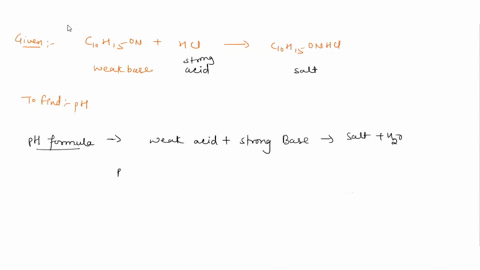 Given:- C10H15ON + HCl → C10H15ONHCl
weak base strong acid salt
To find:- pH
pH formula → weak acid + strong Base → Salt + H2O
P